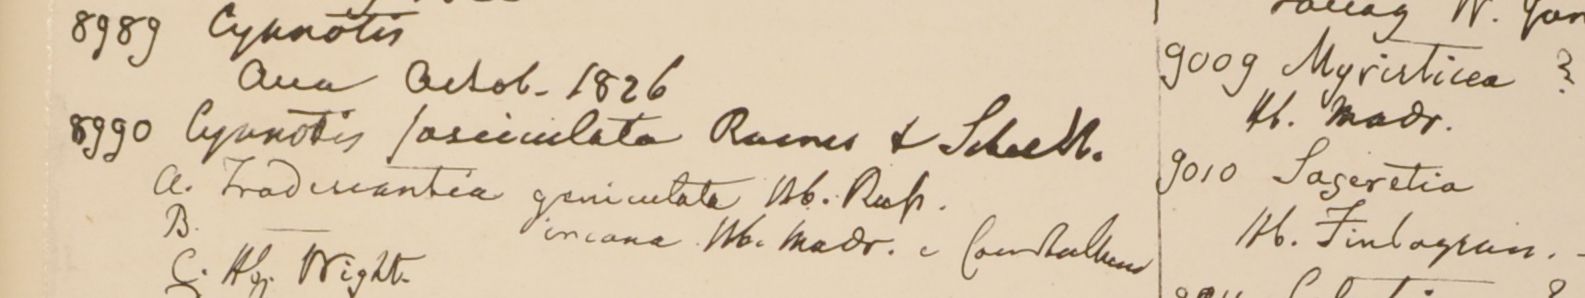 8989 Cyanotis
Ava Octob. 1826
8990 Cyanotis fasciculata Roemes & Schult.
a. Tradescantia geniculata Hb. Russ.
B. — incana Hb. Madr. c
C. Hb. Wight.
W.
9009 Myristicea ?
Hb. Madr.
9010 Sageretia
Hb. Finlaysun.